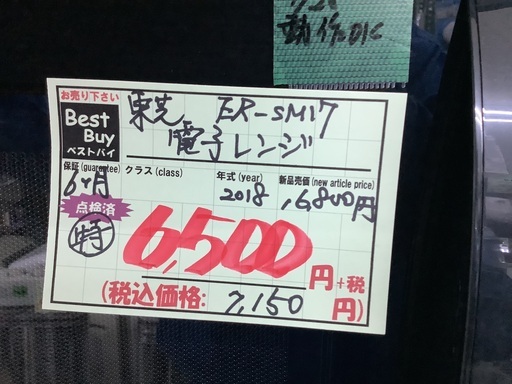 動作OK
お売り下さい
Best Buy
ベストバイ
東芝 ER-SM17
電子レンジ
保証(guarantee) クラス(class) 年式(year) 新品売価(new article price)
6ヶ月 2018 16,800円
点検済
特
6,500円+税
(税込価格: 7,150円)